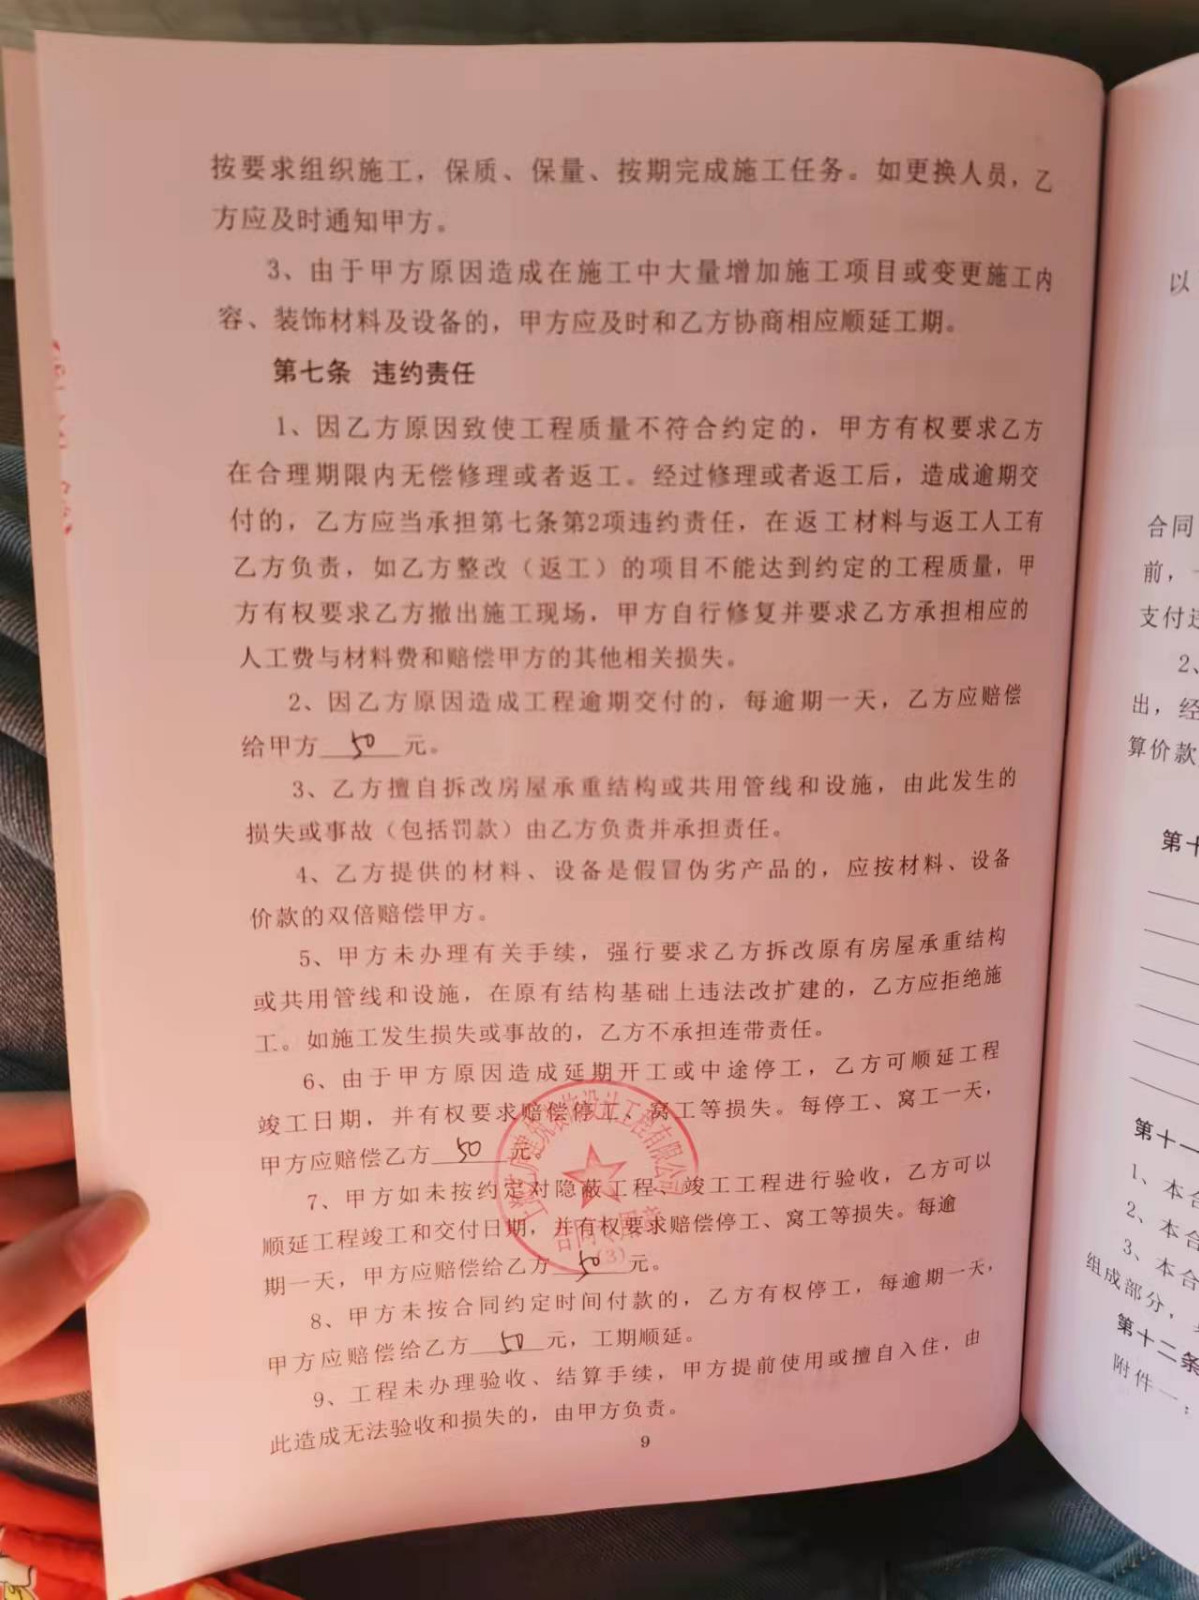 按要求组织施工，保质、保量、按期完成施工任务。如更换人员，乙
方应及时通知甲方。
3、由于甲方原因造成在施工中大量增加施工项目或变更施工内
容、装饰材料及设备的，甲方应及时和乙方协商相应顺延工期。
第七条 违约责任
1、因乙方原因致使工程质量不符合约定的，甲方有权要求乙方
在合理期限内无偿修理或者返工。经过修理或者返工后，造成逾期交
付的，乙方应当承担第七条第2项违约责任，在返工材料与返工人工有
乙方负责，如乙方整改（返工）的项目不能达到约定的工程质量，甲
方有权要求乙方撤出施工现场，甲方自行修复并要求乙方承担相应的
人工费与材料费和赔偿甲方的其他相关损失。
2、因乙方原因造成工程逾期交付的，每逾期一天，乙方应赔偿
给甲方 50 元。
3、乙方擅自拆改房屋承重结构或共用管线和设施，由此发生的
损失或事故（包括罚款）由乙方负责并承担责任。
4、乙方提供的材料、设备是假冒伪劣产品的，应按材料、设备
价款的双倍赔偿甲方。
5、甲方未办理有关手续，强行要求乙方拆改原有房屋承重结构
或共用管线和设施，在原有结构基础上违法改扩建的，乙方应拒绝施
工。如施工发生损失或事故的，乙方不承担连带责任。
6、由于甲方原因造成延期开工或中途停工，乙方可顺延工程
竣工日期，并有权要求赔偿停工、窝工等损失。每停工、窝工一天，
甲方应赔偿乙方 50 元
7、甲方如未按约定对隐蔽工程、竣工工程进行验收，乙方可以
顺延工程竣工和交付日期，并有权要求赔偿停工、窝工等损失。每逾
期一天，甲方应赔偿给乙方 50 元。
8、甲方未按合同约定时间付款的，乙方有权停工，每逾期一天，
甲方应赔偿给乙方 50 元，工期顺延。
9、工程未办理验收、结算手续，甲方提前使用或擅自入住，由
此造成无法验收和损失的，由甲方负责。
9
建筑装饰设计工程有限公司
合同专用章
(3)
以
合同
前，
支付
2、
出，经
算价款
第十
第十一
1、本合
2、本合
3、本合
组成部分，
第十二条
附件一：